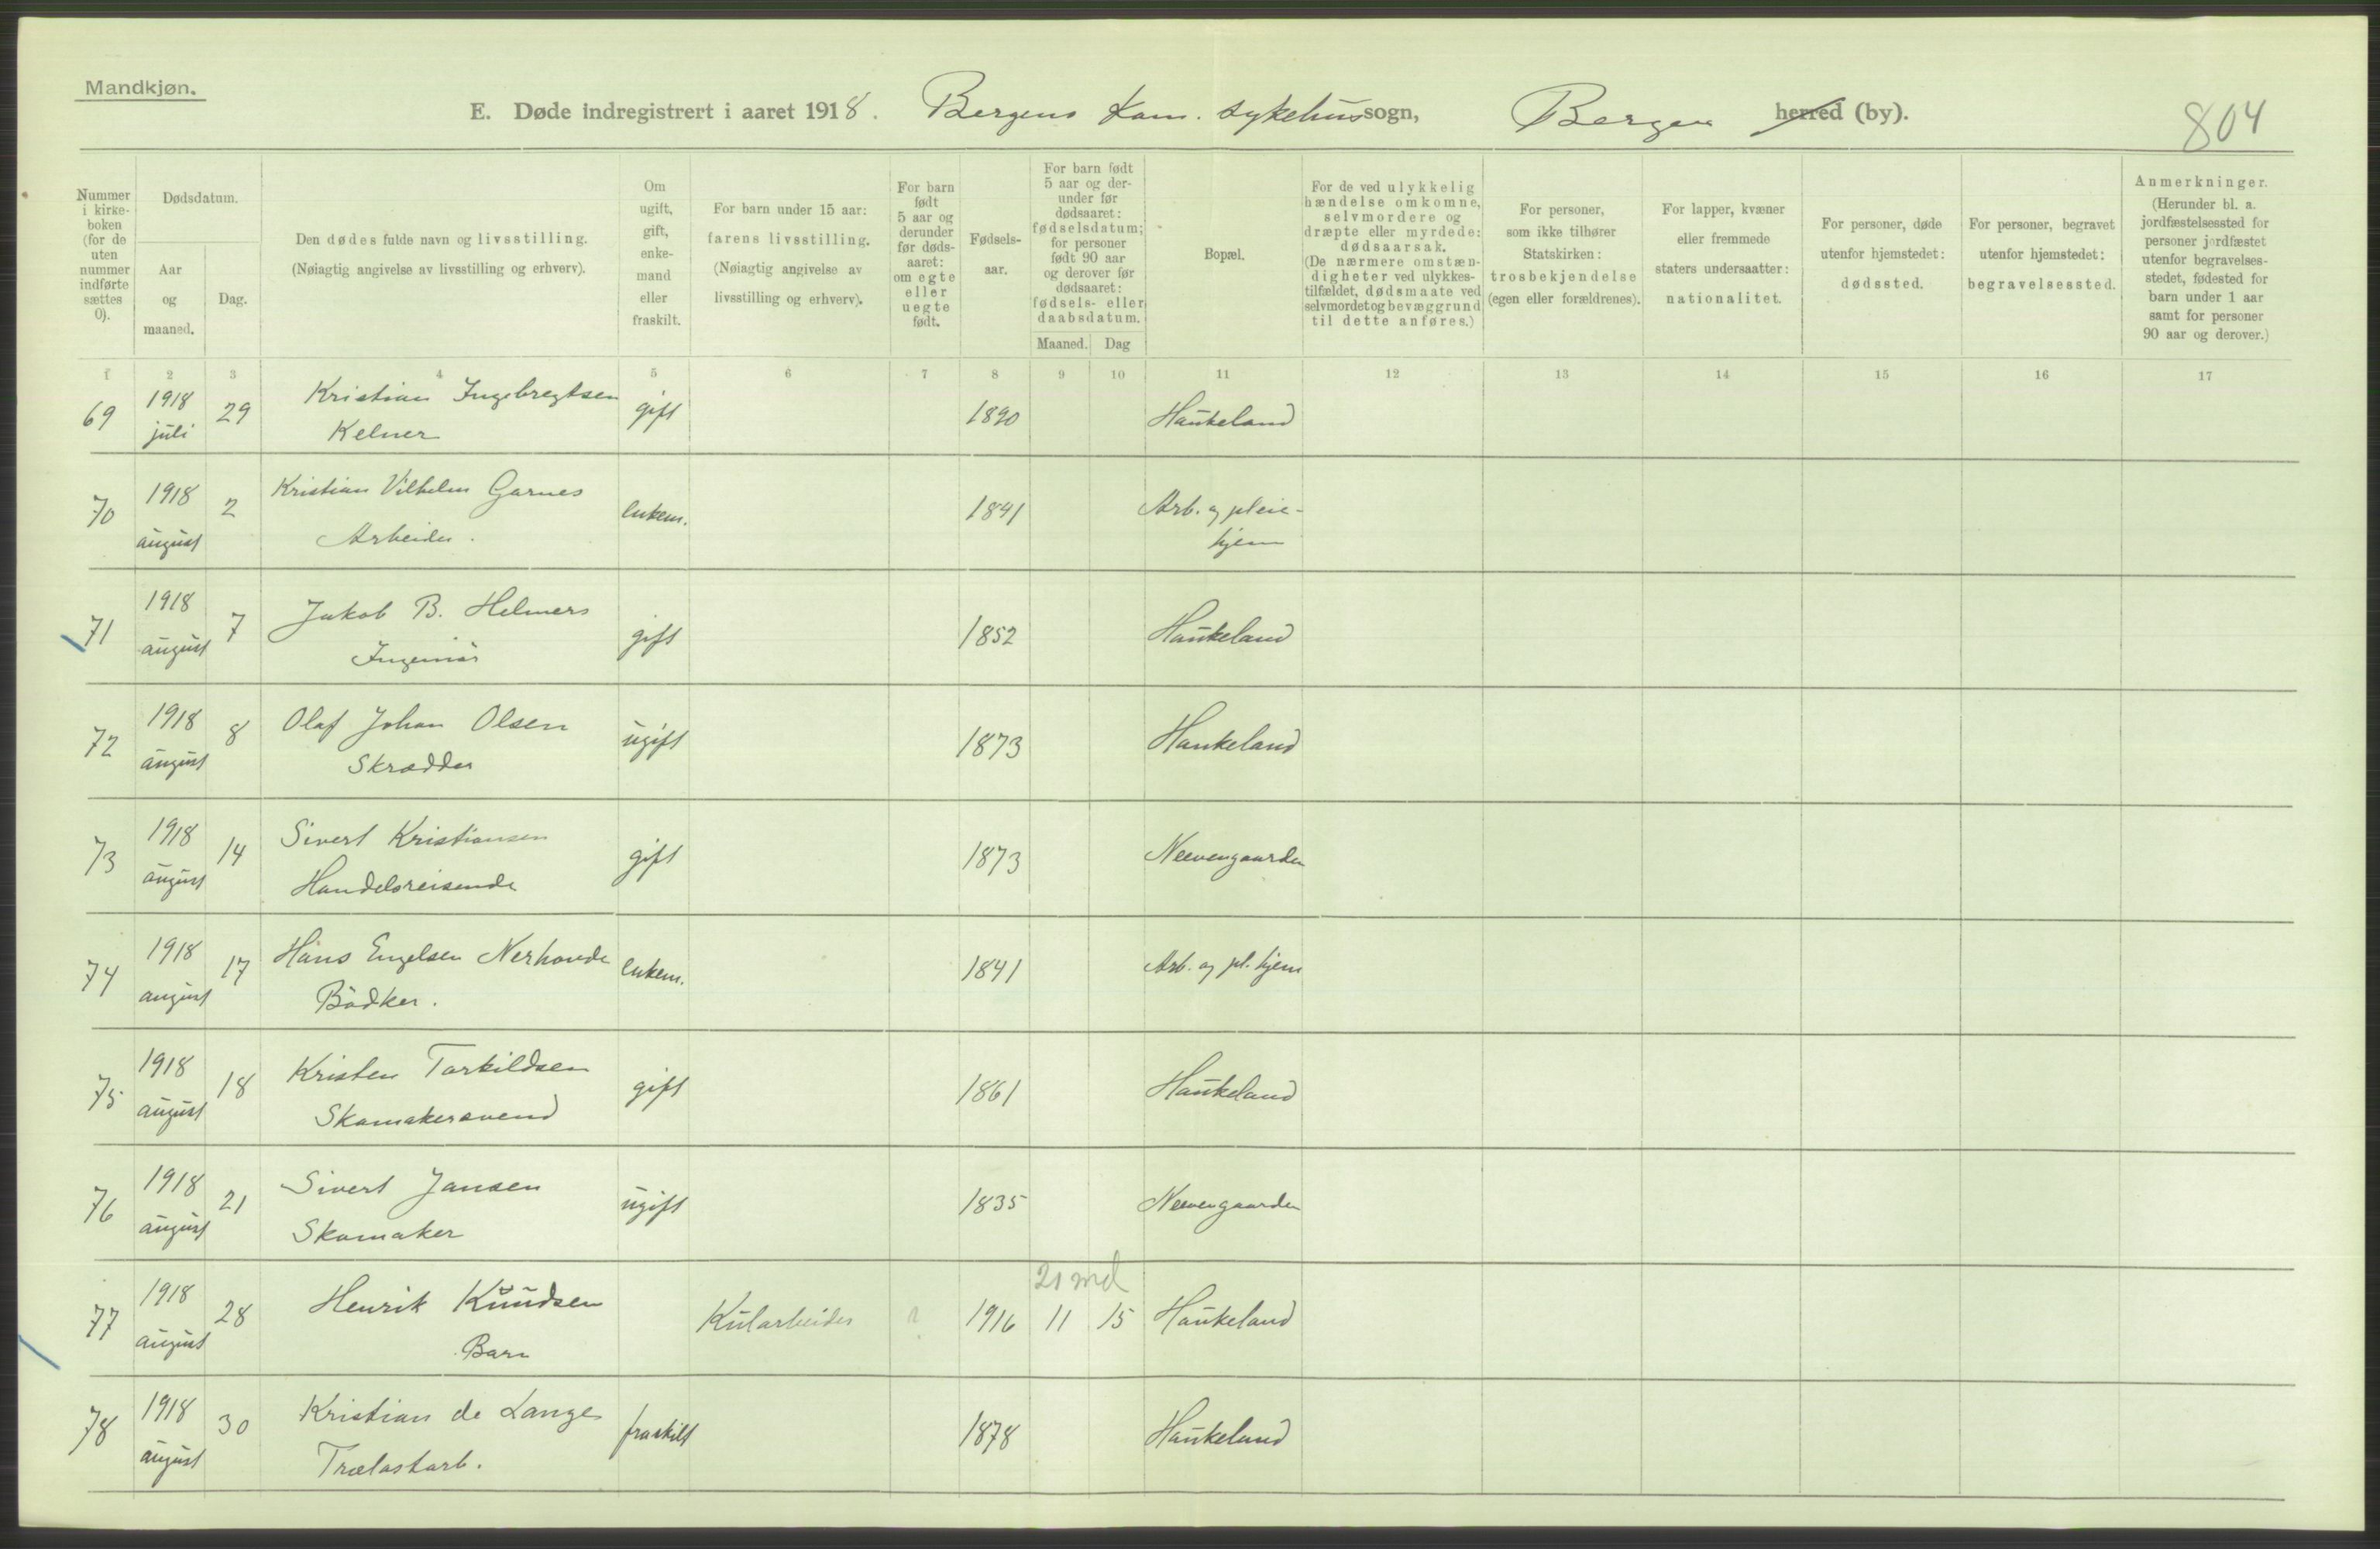 Mandkjøn.
E. Døde indregistrert i aaret 1918. Bergens kom. sykehus sogn, Bergen herred (by).
804
Nummer i kirkeboken (for de uten nummer indførte sættes 0).
Dødsdatum.
Aar og maaned.
Dag.
Den dødes fulde navn og livsstilling.
(Nøiagtig angivelse av livsstilling og erhverv).
Om ugift, gift, enkemand eller fraskilt.
For barn under 15 aar: farens livsstilling. (Nøiagtig angivelse av livsstilling og erhverv).
For barn født 5 aar og derunder før dødsaaret: om egte eller uegte født.
Fødselsaar.
For barn født 5 aar og derunder før dødsaaret: fødselsdatum; for personer født 90 aar og derover før dødsaaret: fødsels- eller daabsdatum.
Maaned. Dag
Bopæl.
For de ved ulykkelig hændelse omkomne, selvmordere og dræpte eller myrdede: dødsaarsak. (De nærmere omstændigheter ved ulykkestilfældet, dødsmaate ved selvmordet og bevæggrund til dette anføres.)
For personer, som ikke tilhører Statskirken: trosbekjendelse (egen eller forældrenes).
For lapper, kvæner eller fremmede staters undersaatter: nationalitet.
For personer, døde utenfor hjemstedet: dødssted.
For personer, begravet utenfor hjemstedet: begravelsessted.
Anmerkninger. (Herunder bl. a. jordfæstelsessted for personer jordfæstet utenfor begravelsesstedet, fødested for barn under 1 aar samt for personer 90 aar og derover.)
1 2 3 4 5 6 7 8 9 10 11 12 13 14 15 16 17
69 1918 juli 29 Kristian Ingebregtsen gift 1890 Haukeland
Kelner
70 1918 august 2 Kristian Vilhelm Garnes enkem. 1841 Arb. og pleiehjem
Arbeider.
71 1918 august 7 Jakob B. Helmers gift 1852 Haukeland
Ingeniør
72 1918 august 8 Olaf Johan Olsen ugift 1873 Haukeland
Skrædder
73 1918 august 14 Sivert Kristiansen gift 1873 Neevengaarden
Handelsreisende
74 1918 august 17 Hans Engelsen Nerhovde enkem. 1841 Arb. og pl. hjem
Bødker.
75 1918 august 18 Kristen Torkildsen gift 1861 Haukeland
Skomakersvend
76 1918 august 21 Sivert Jansen ugift 1835 Neevengaarden
Skomaker
21 md
77 1918 august 28 Henrik Knudsen Kularbeider 1916 11 15 Haukeland
Barn
78 1918 august 30 Kristian de Lange fraskilt 1878 Haukeland
Trælastarb.